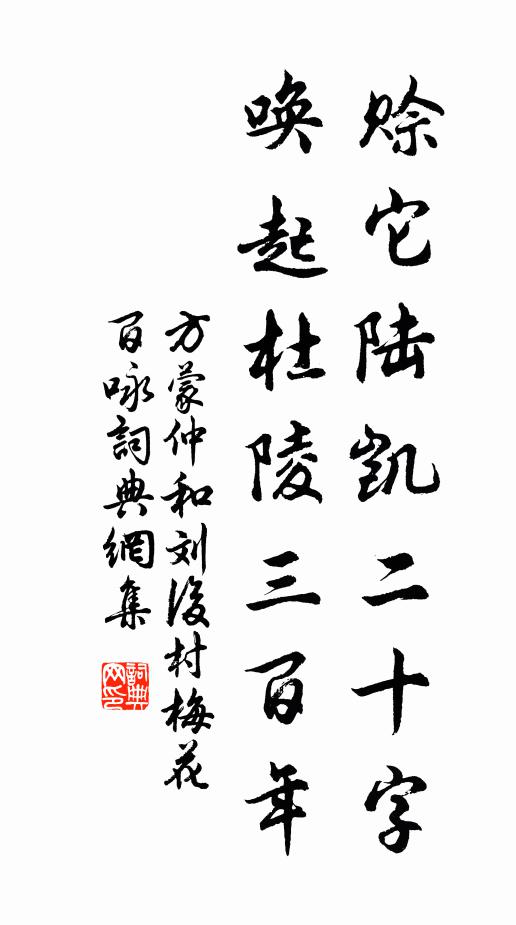 赊它陆凯二十字
唤起杜陵三百年
方蒙仲和刘後村梅花
百咏詞典網集
詞典网印